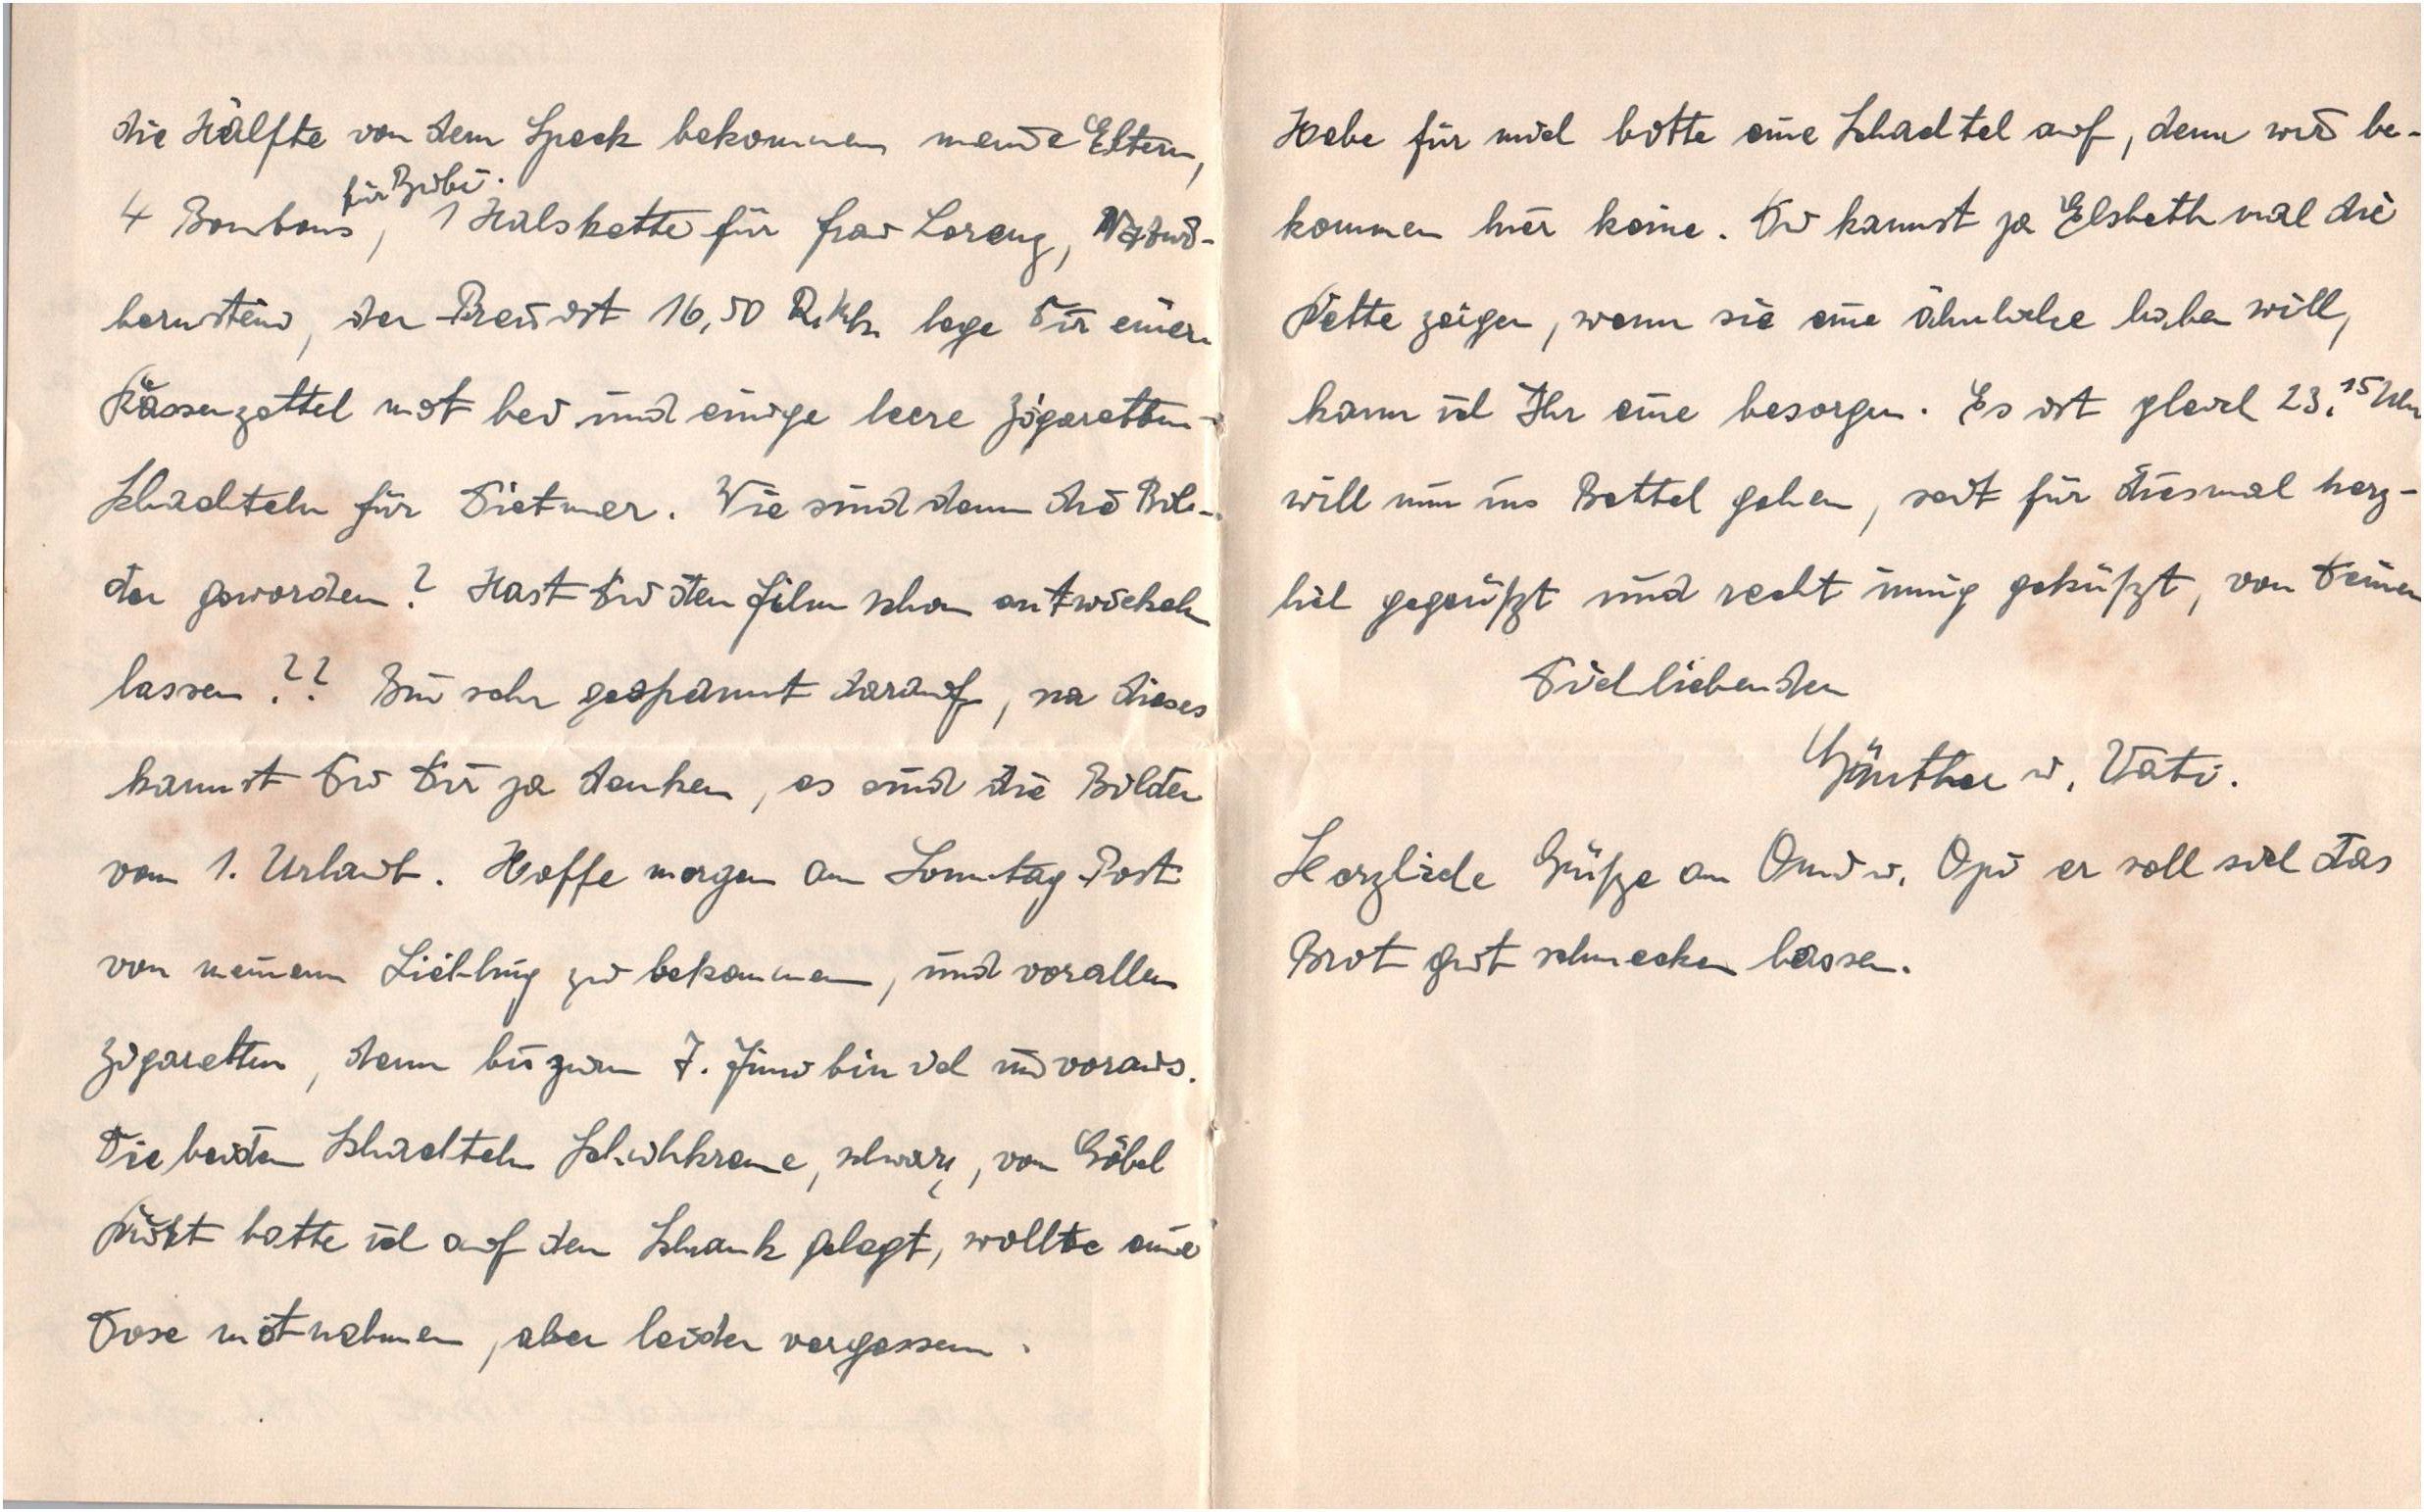 die Hälfte von dem Speck bekommen meine Eltern,
für Bubi.
4 Bonbons, 1 Halskette für Frau Lorenz, Natur-
bernstein, der Preis ist 16,50 R.Mk. lege Dir einen
Kassenzettel mit bei und einige leere Zigaretten-
schachteln für Dietmer. Wie sind denn die Bil-
der geworden? Hast Du den Film schon entwickeln
lassen?? Bin sehr gespannt darauf, na dieses
kannst Du Dir ja denken, es sind die Bilder
vom 1. Urlaub. Hoffe morgen am Sonntag Post
von meinem Liebling zu bekommen, und vorallen
Zigaretten, denn bis zum 7. Juni bin ich im voraus.
Die beiden Schachteln Schuhkreme, schwarz, von Göbel
hatte ich auf den Schrank gelegt, wollte eine
Dose mitnehmen, aber leider vergessen.
Hebe für mich bitte eine Schachtel auf, denn wir be-
kommen hier keine. Du kannst ja Elsbeth mal die
Kette zeigen, wenn sie eine ähnliche haben will,
kann ich Ihr eine besorgen. Es ist gleich 23.15 Uhr
will nun ins Bettel gehen, seit für diesmal herz-
lich gegrüßt und recht innig geküßt, von Deinen
Dich liebenden
Günther u. Vati.
Herzliche Grüße an Omi u. Opi er soll sich das
Brot gut schmecken lassen.